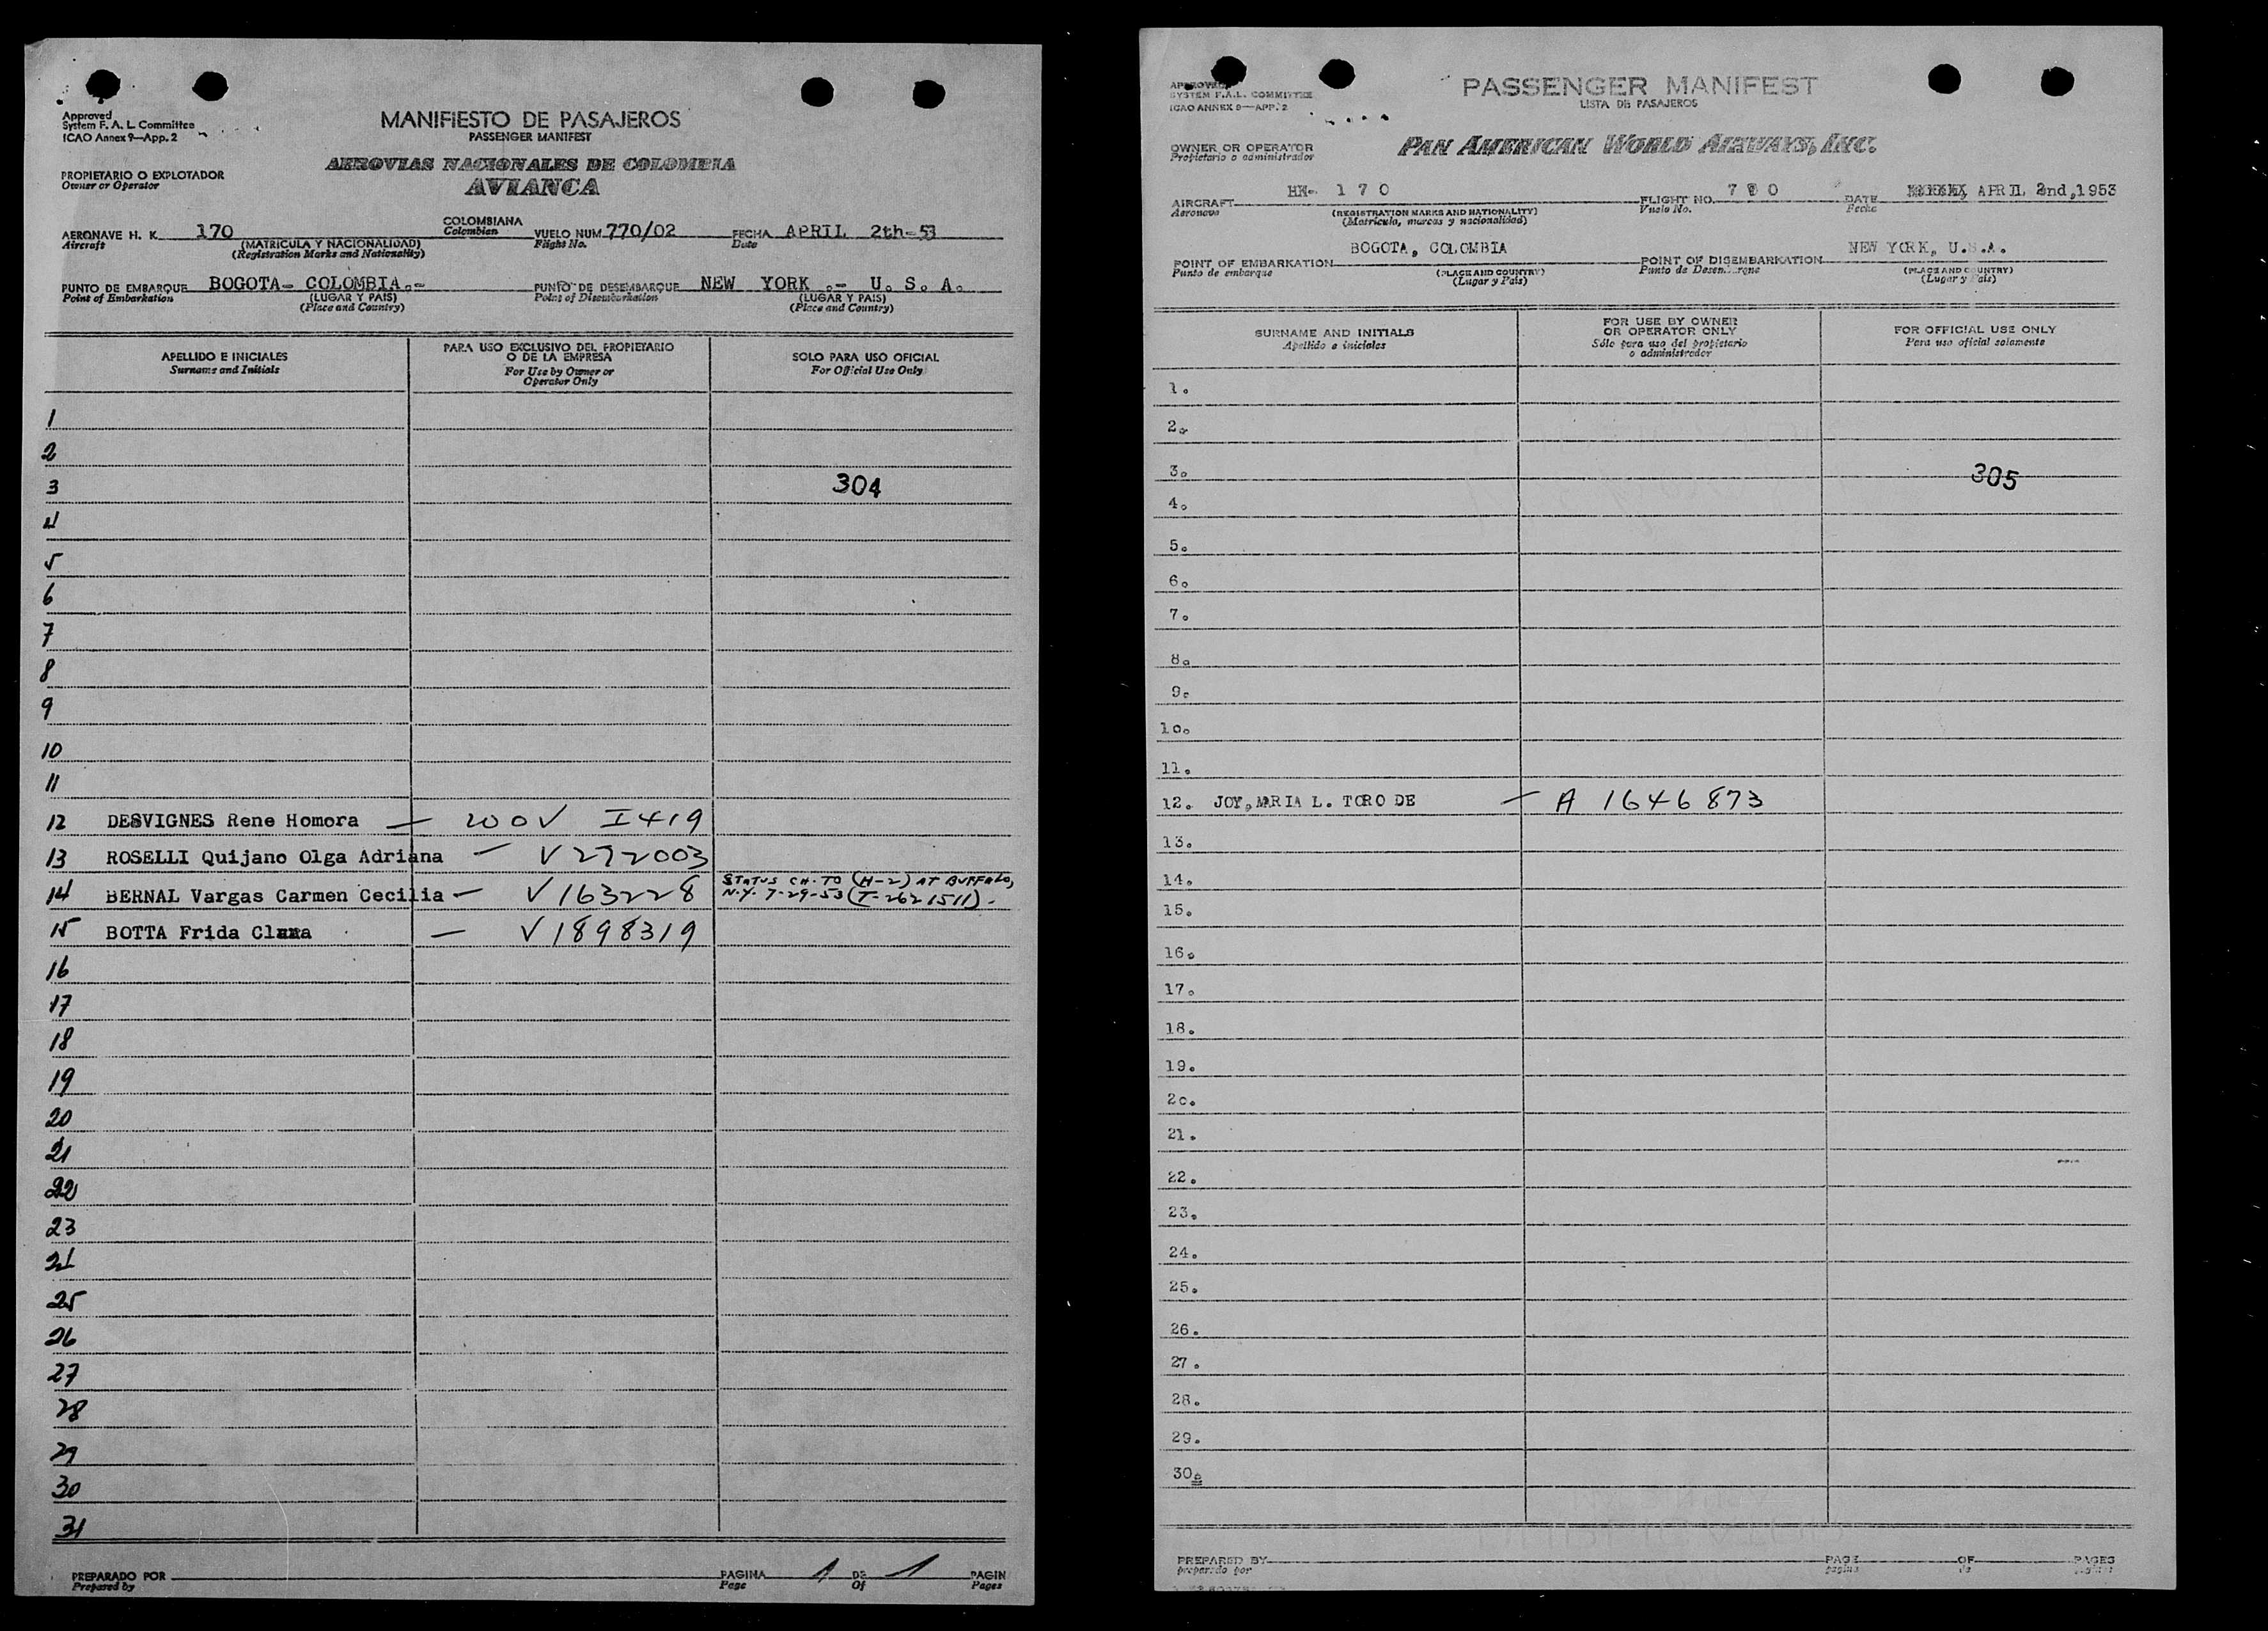 Approved
System F. A. L. Committee
ICAO Annex 9—App. 2
MANIFIESTO DE PASAJEROS
PASSENGER MANIFEST
AEROVIAS NACIONALES DE COLOMBIA
AVIANCA
PROPIETARIO O EXPLOTADOR
Owner or Operator
AERONAVE H. K. 170 COLOMBIANA VUELO NUM 770/02 FECHA APRIL 2th-53
Aircraft (MATRICULA Y NACIONALIDAD) Colombian Flight No. Date
(Registration Marks and Nationality)
PUNTO DE EMBARQUE BOGOTA- COLOMBIA.- PUNTO DE DESEMBARQUE NEW YORK .- U. S. A.
Point of Embarkation (LUGAR Y PAIS) Point of Disembarkation (LUGAR Y PAIS)
(Place and Country) (Place and Country)
APELLIDO E INICIALES
Surname and Initials
PARA USO EXCLUSIVO DEL PROPIETARIO
O DE LA EMPRESA
For Use by Owner or
Operator Only
SOLO PARA USO OFICIAL
For Official Use Only
1
2
3 304
4
5
6
7
8
9
10
11
12 DESVIGNES Rene Homora — 200V I419
13 ROSELLI Quijano Olga Adriana — V272003
14 BERNAL Vargas Carmen Cecilia — V163228 STATUS CH. TO (H-2) AT BUFFALO,
N.Y. 7-29-53 (T-2621511).
15 BOTTA Frida Clara — V1898319
16
17
18
19
20
21
22
23
24
25
26
27
28
29
30
31
PREPARADO POR PAGINA 1 DE 1 PAGIN
Prepared by Page Of Pages
APPROVED
SYSTEM F.A.L. COMMITTEE
ICAO ANNEX 9—APP. 2
PASSENGER MANIFEST
LISTA DE PASAJEROS
OWNER OR OPERATOR PAN AMERICAN WORLD AIRWAYS, INC.
Propietario o administrador
AIRCRAFT HK- 170 FLIGHT NO. 770 DATE APRIL 2nd,1953
Aeronave (REGISTRATION MARKS AND NATIONALITY) Vuelo No. Fecha
(Matrícula, marcas y nacionalidad)
POINT OF EMBARKATION BOGOTA, COLOMBIA POINT OF DISEMBARKATION NEW YORK, U.S.A.
Punto de embarque (PLACE AND COUNTRY) Punto de Desembarque (PLACE AND COUNTRY)
(Lugar y País) (Lugar y País)
SURNAME AND INITIALS
Apellido e iniciales
FOR USE BY OWNER
OR OPERATOR ONLY
Sólo para uso del propietario
o administrador
FOR OFFICIAL USE ONLY
Para uso oficial solamente
1.
2.
3. 305
4.
5.
6.
7.
8.
9.
10.
11.
12. JOY, MARIA L. TORO DE — A 1646873
13.
14.
15.
16.
17.
18.
19.
20.
21.
22.
23.
24.
25.
26.
27.
28.
29.
30.
PREPARED BY PAGE OF PAGES
preparado por página de páginas